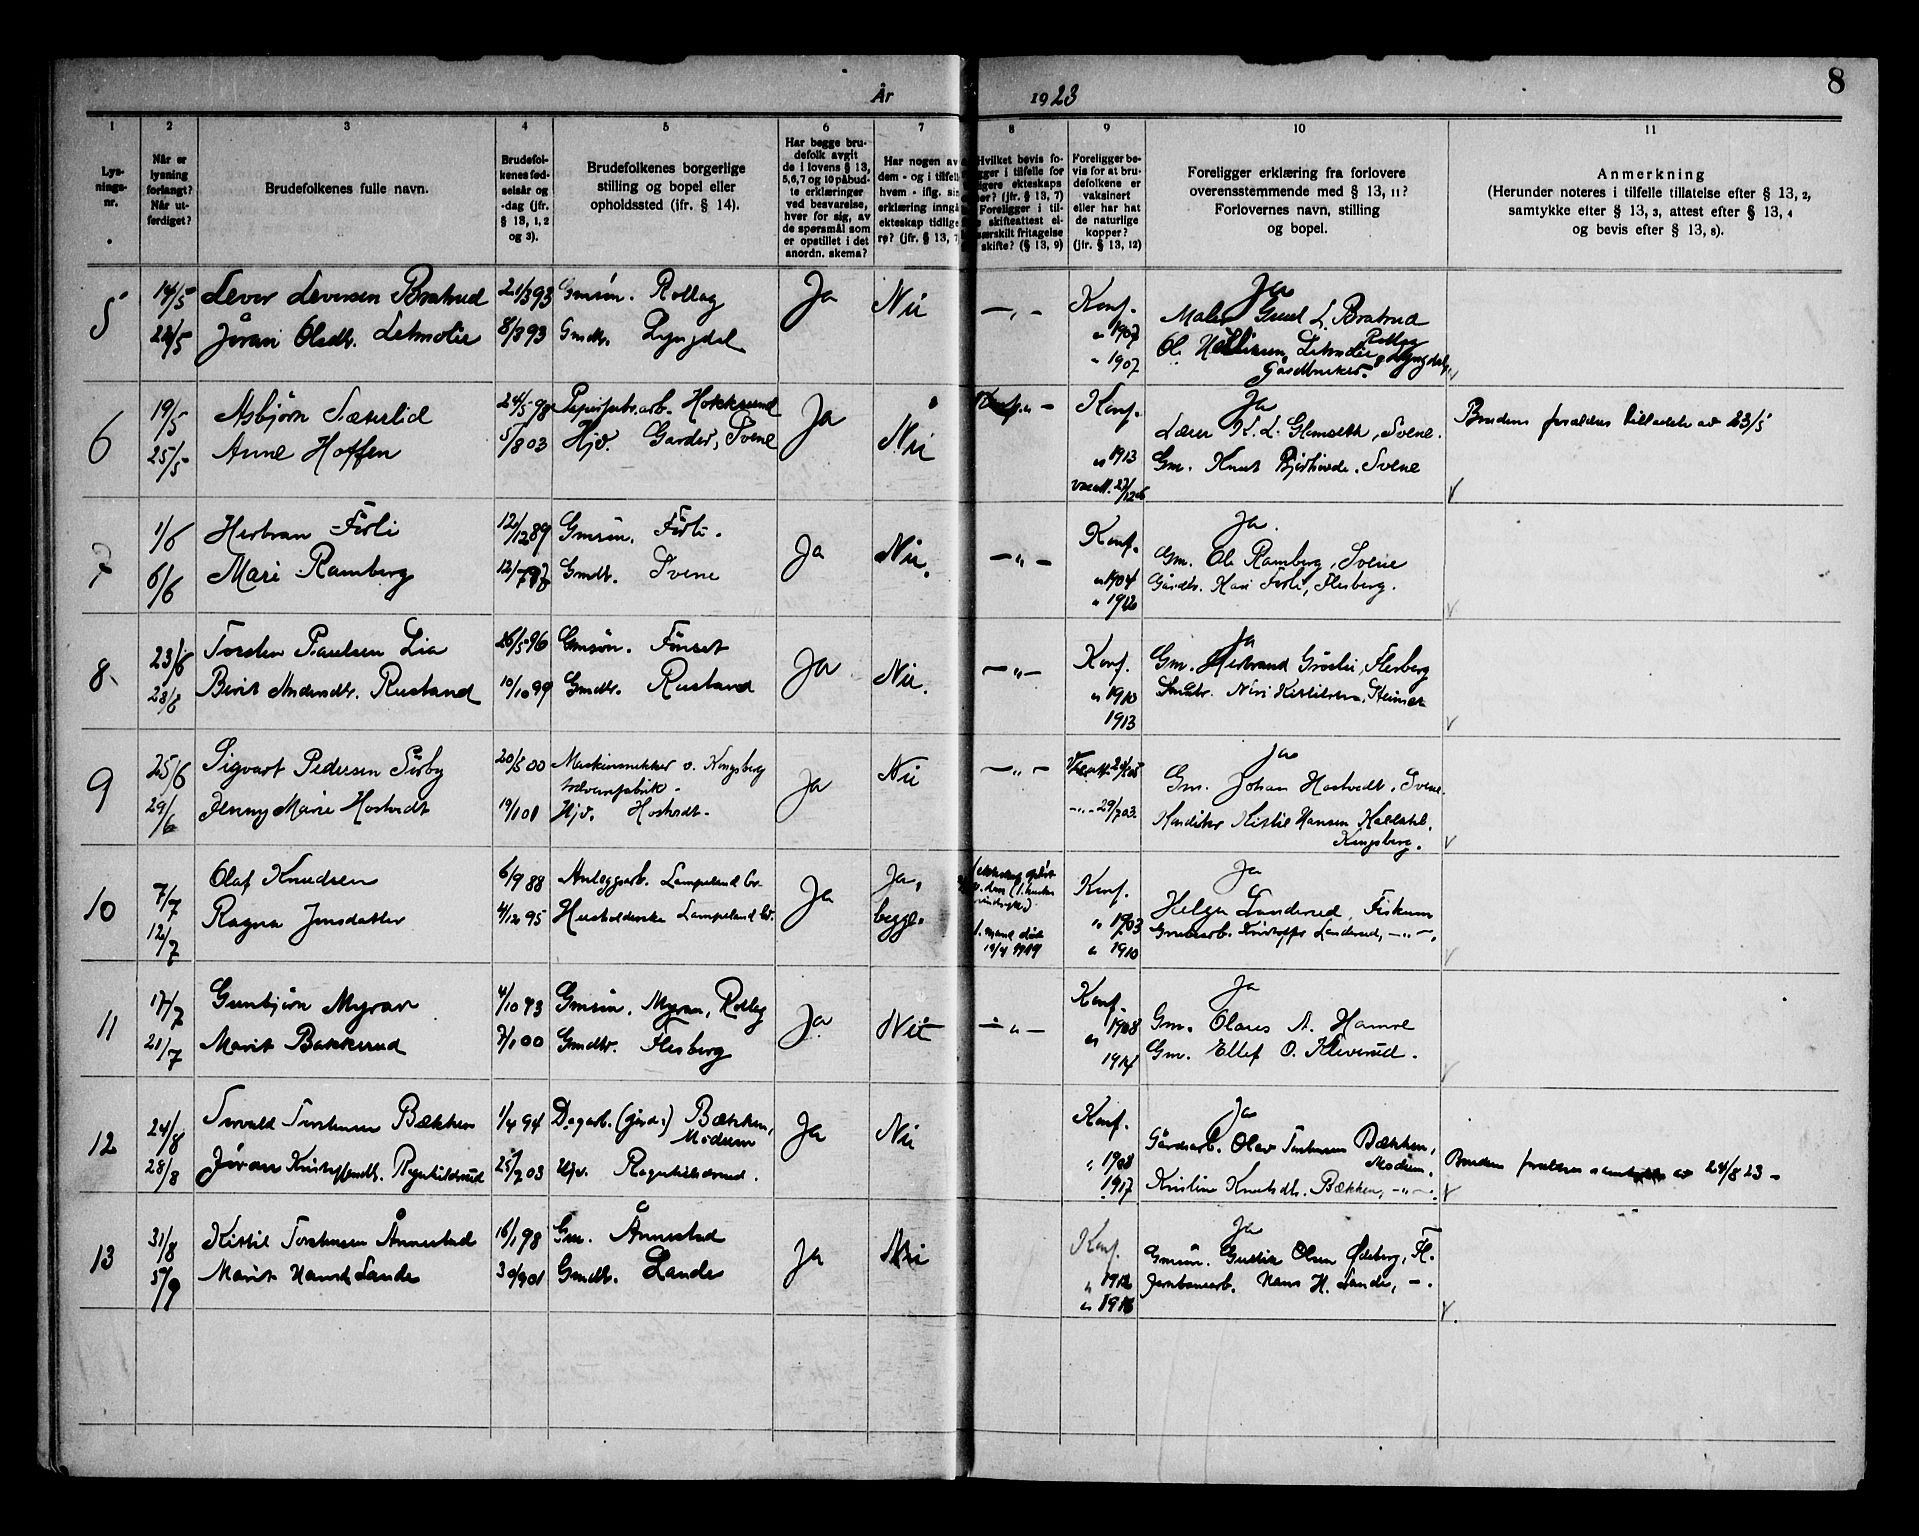 År 1923
8
1 2 3 4 5 6 7 8 9 10 11
Lys-
nings-
nr.
Når er
lysning
forlangt?
Når ut-
ferdiget?
Brudefolkenes fulle navn.
Brudefol-
kenes fød-
selsår og
-dag (jfr.
§ 13, 1, 2
og 3).
Brudefolkenes borgerlige
stilling og bopel eller
opholdssted (jfr. § 14).
Har begge bru-
defolk avgit
de i lovens § 13,
5,6,7 og 10 påbud-
te erklæringer
ved besvarelse,
hver for sig, av
de spørsmål som
er opstillet i det
anordn. skema?
Har nogen av
dem - og i tilfelle
hvem - iflg.
erklæring inngå
ekteskap tidlige-
re? (jfr. § 13, 7
Hvilket bevis fo-
ligger i tilfelle for
ligere ekteskaps
(jfr. § 13, 7)
Foreligger i til-
skifteattest el-
særskilt fritagelse
skifte? (§ 13, 9)
Foreligger be-
vis for at bru-
defolkene er
vaksinert
eller har hat
de naturlige
kopper?
(jfr. § 13, 12)
Foreligger erklæring fra forlovere
overensstemmende med § 13, 11?
Forlovernes navn, stilling
og bopel.
Anmerkning
(Herunder noteres i tilfelle tillatelse efter § 13, 2,
samtykke efter § 13, 3, attest efter § 13, 4
og bevis efter § 13, 8).
5 14/5 Lever Leversen Bratrud 21/3 93 Gmsøn. Rollag Ja Nei — „ — Konf. Ja
Maler Gunl L. Bratrud
„ 1907 Rollag
Jøran Olsdtr. 8/3 93 Gmdtr. Lyngdal
„ 1907 Gårdbruker.
6 19/5 Asbjørn Sæterlid 24/5 98 Hokksund Ja Nei Konf. Ja
25/5 Anne Hoffen 5/8 03 Hjv. Garder, Svene
Lærer K. L. Glømseth, Svene.
„ 1913 Gm. Knut Svene
Brudens foreldres tilladelse av 23/5
7 1/6 Herbran Førli 12/12 89 Gmsøn. Førli. Ja Nei. — „ — Konf. Ja.
6/6 Mari Ramberg Gmdt. Svene
Gm. Ole Ramberg, Svene
„ 1904 Gårdbr. Kari Førli, Flesberg.
„ 1912
8. 23/6 Torsten Paulsen Lia 26/5 96 Gmsøn. Fønset Ja Nei. — „ — Konf. Ja
28/6 Berit Andersdtr. Rustand 10/10 99 Gmdtr. Rustand
Gm. Herbrand Grøslie, Flesberg
„ 1910
1913
9 25/6 Sigvart Pedersen Sørby 20/5 00 Maskinsnekker v. Kongsberg
våbenfabrik. Ja Nei — „ — Ja
29/6 Jenny Marie Hostvedt 19/1 01 Hjv. Hostvedt.
— „ — 29/7 03.
Gm. Johan Hostvedt, Svene.
Kistil Hansen
Kongsberg.
10 7/7 Olaf Knudsen 6/9 88 Anleggsarb. Lampeland Ja Ja, begge. Konf. Ja
12/7 Ragna Jensdatter 4/12 95 Husholderske Lampeland
1. mand død
19/4 1919
„ 1903
„ 1910
Helge Landerud, Fiskum
Grubearb. Kristoffer Landerud, — „ —.
11 17/7 Gunbjørn Myran 4/10 93 Gmsøn. Myran, Rollag Ja Nei — „ — Konf. Ja
21/7 Marit Bakkerud 7/1 00 Gmdtr. Flesberg
„ 1908 Gm. Olaves A. Hamre
1914 Gm. Ellef O. Kleverud.
12 24/8 Torvald Torstensen Bækken 1/4 94 Dagarb. (jord.) Bækken,
Modum Ja Nei Konf. Ja
28/8 Jøran Kristoffersdt. Ragnhildrud Hjv. Ragnhildsrud.
Gårdsarb. Olav Torstensen Bækken,
„ 1908 Modum.
„ 1917 Kristine Knutsdt. Bækken, — „ —.
Brudens foreldres samtykke av 24/8 23 —
13 31/8 Kittil Torstensen Ånnestad 16/1 98 Gm. Ånnestad Ja Nei Konf. Ja
5/9 Marit Hansdt. Lande 30/9 01 Gmdtr. Lande
Gmsøn. Gustav Olsen Ødeberg, Fl.
„ 1912 Jernbanearb. Hans H. Lande, — .
„ 1916